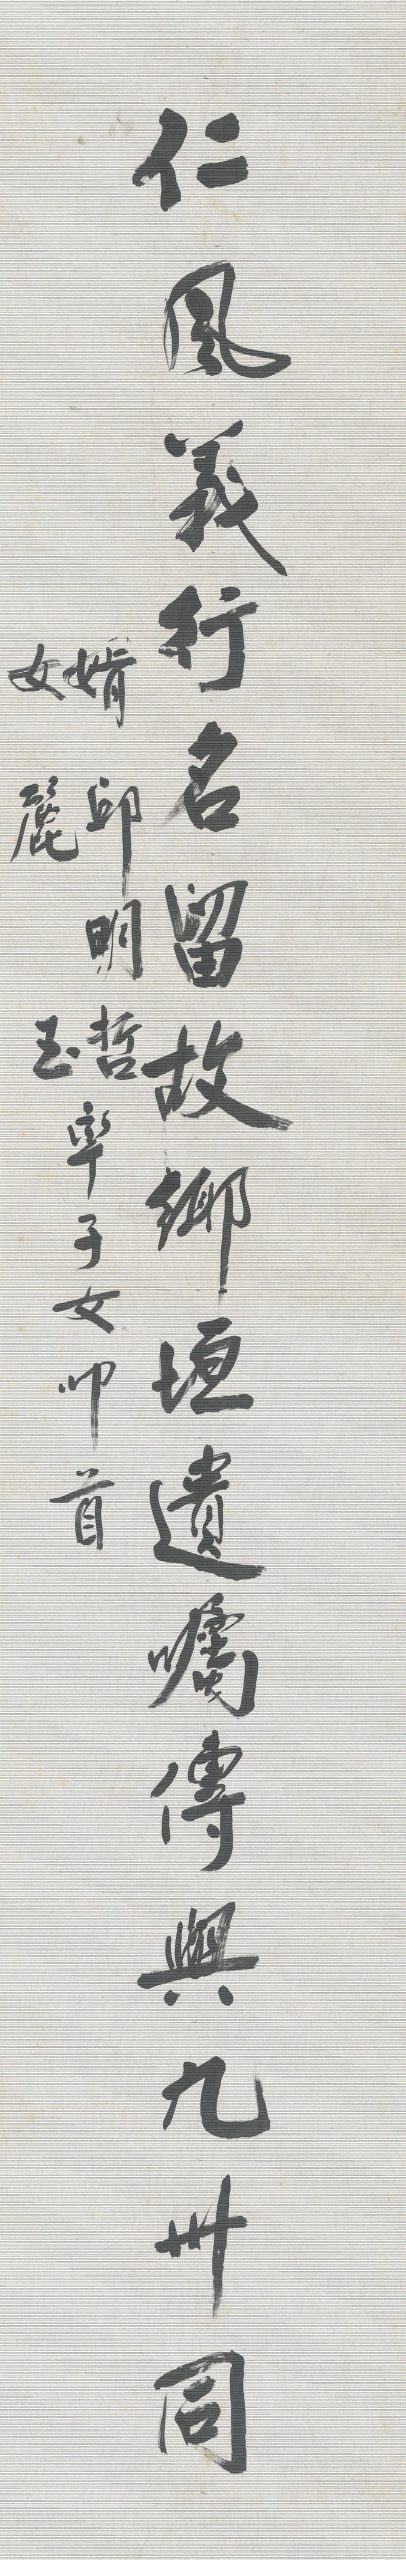 仁風義行名留故鄉垣遺囑傳與九州同
婿邱明哲
女麗玉
率子女叩首